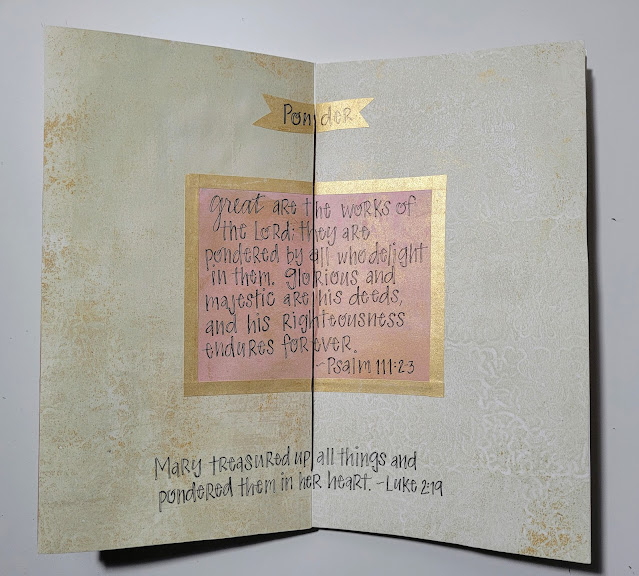 Ponder
great are the works of
the Lord; they are
pondered by all who delight
in them. Glorious and
majestic are his deeds,
and his righteousness
endures forever.
~Psalm 111:2-3
Mary treasured up all things and
pondered them in her heart. ~Luke 2:19